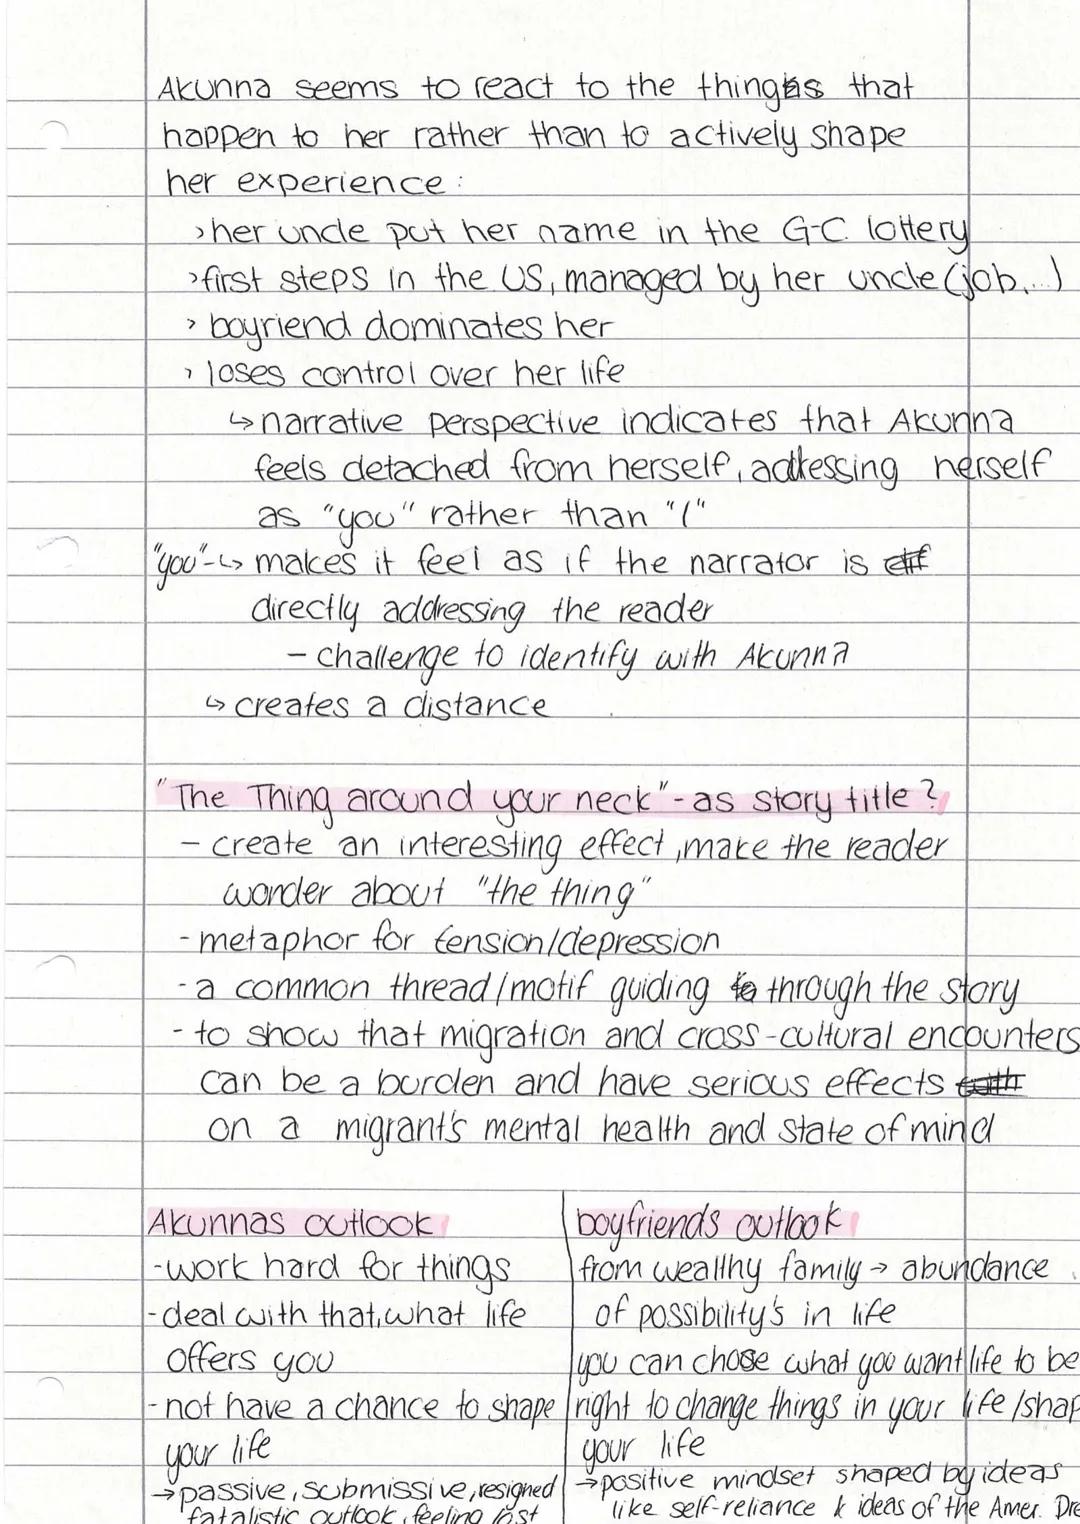 Akunna seems to react to the things that
happen to her rather than to actively shape
her experience:
>her uncle put her name in the G-C. lottery
>first steps in the US, managed by her uncle (job,...)
> boyriend dominates her
> loses control over her life
↳ narrative perspective indicates that Akunna
feels detached from herself, addressing herself
as "you" rather than "I"
"you"-↳ makes it feel as if the narrator is
directly addressing the reader
- challenge to identify with Akunna
↳ creates a distance
"The Thing around your neck" - as story title?
- create an interesting effect, make the reader
wonder about "the thing"
- metaphor for tension/depression
- a common thread/motif guiding through the story
- to show that migration and cross-cultural encounters
can be a burden and have serious effects
on a migrant's mental health and state of mind
Akunnas outlook
-work hard for things
-deal with that, what life
offers you
-not have a chance to shape
your life
→passive, submissive, resigned
fatalistic outlook, feeling lost
boyfriends outlook
from wealthy family → abundance
of possibility's in life
you can chose what you want life to be
right to change things in your life/shap
your life
→positive mindset shaped by ideas
like self-reliance & ideas of the Amer. Dre